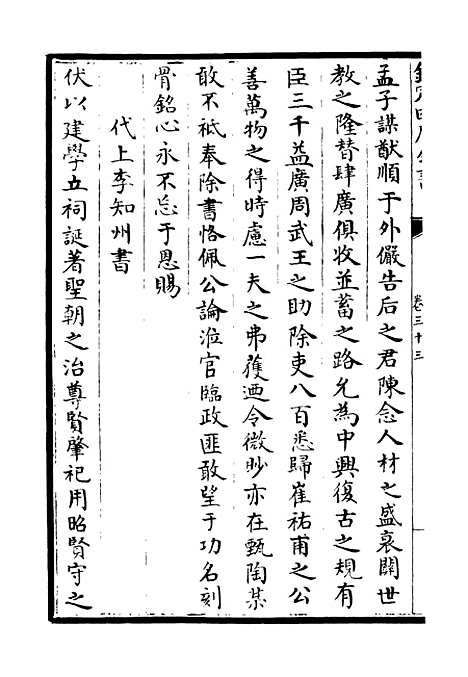 孟子謀猷順于外儼告后之君陳念人材之盛衰關世
教之隆替肆廣俱收並蓄之路允為中興復古之規有
臣三千益廣周武王之助除吏八百悉歸崔祐甫之公
善萬物之得時慮一夫之弗獲迺令微眇亦在甄陶某
敢不祗奉除書恪佩公論涖官臨政匪敢望于功名刻
骨銘心永不忘于恩賜
代上李知州書
伏以建學立祠誕著聖朝之治尊賢肇祀用昭賢守之
卷三十三